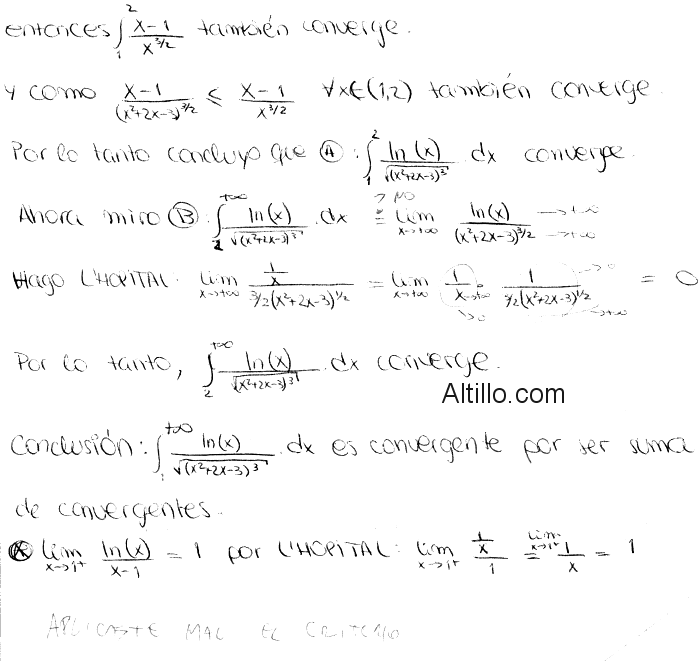 entonces ∫₁² (x-1)/x^(3/2) también converge.
Y como (x-1)/(x²+2x-3)^(3/2) ≤ (x-1)/x^(3/2) ∀x∈(1,2) también converge.
Por lo tanto concluyo que Ⓐ: ∫₁² ln(x)/√(x²+2x-3)³ dx converge.
Ahora miro Ⓑ: ∫₂^(+∞) ln(x)/√(x²+2x-3)³ dx = lim x→+∞ ln(x)/(x²+2x-3)^(3/2) →+∞ →+∞
→ NO
Hago L'HOPITAL: lim x→+∞ (1/x)/(3/2(x²+2x-3)^(1/2)) = lim x→+∞ 1/x · 1/(3/2(x²+2x-3)^(1/2)) = 0
→0 →0 →+∞
Por lo tanto, ∫₂^(+∞) ln(x)/√(x²+2x-3)³ dx converge.
Altillo.com
Conclusión: ∫₁^(+∞) ln(x)/√(x²+2x-3)³ dx es convergente por ser suma
de convergentes.
lim x→1⁺ ln(x)/(x-1) = 1 por L'HOPITAL: lim x→1⁺ (1/x)/1 = lim x→1⁺ 1/x = 1
APLICASTE MAL EL CRITERIO